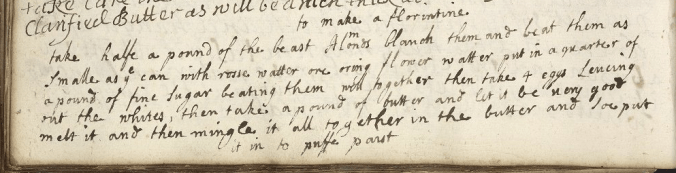 Clarified Butter as will
to make a florintine
take halfe a pound of the beast Almonds blanch them and beat them as
Smalle as ye can with rosse watter ore oring flower watter put in a quarter of
a pound of fine Sugar beating them will together then take 4 eggs Leucing
out the whites, then take a pound of butter and let it be very good
melt it and then mingle it all together in the butter and soe put
it in to puffe past